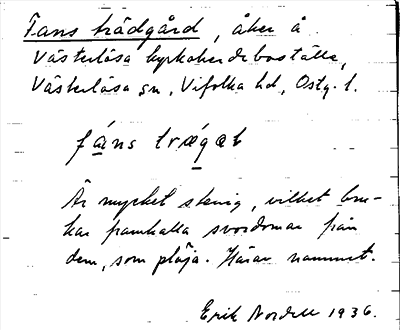 Fans trädgård, åker å
Västerlösa kyrkoherdeboställe,
Västerlösa sn, Vifolka hd, Östg. l.
fá̱ns træ̱̀gaʈ
Är mycket stenig, vilket bru-
kar framkalla svordomar från
dem, som plöja. Härav namnet.
Erik Nordell 1936.